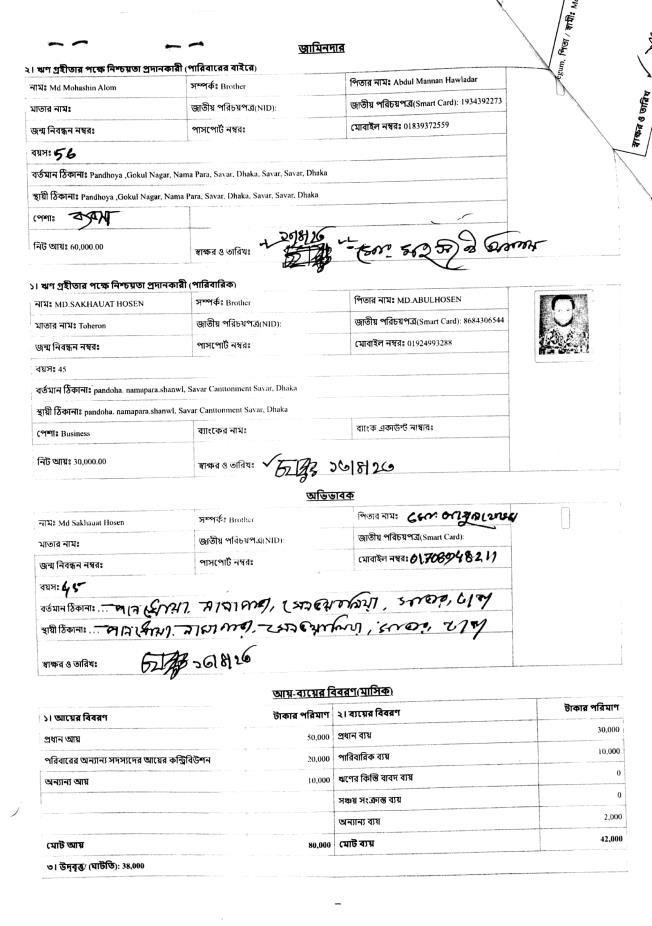 জামিনদার
egum, পিতা / স্বামীঃ M
স্বাক্ষর ও তারিখ
২। ঋণ গ্রহীতার পক্ষে নিশ্চয়তা প্রদানকারী (পারিবারের বাইরে)
নামঃ Md Mohashin Alom সম্পর্কঃ Brother পিতার নামঃ Abdul Mannan Hawladar
মাতার নামঃ জাতীয় পরিচয়পত্র(NID): জাতীয় পরিচয়পত্র(Smart Card): 1934392273
জন্ম নিবন্ধন নম্বরঃ পাসপোর্ট নম্বরঃ মোবাইল নম্বরঃ 01839372559
বয়সঃ 56
বর্তমান ঠিকানাঃ Pandhoya ,Gokul Nagar, Nama Para, Savar, Dhaka, Savar, Savar, Dhaka
স্থায়ী ঠিকানাঃ Pandhoya ,Gokul Nagar, Nama Para, Savar, Dhaka, Savar, Savar, Dhaka
পেশাঃ
নিট আয়ঃ 60,000.00 স্বাক্ষর ও তারিখঃ
১। ঋণ গ্রহীতার পক্ষে নিশ্চয়তা প্রদানকারী (পারিবারিক)
নামঃ MD.SAKHAUAT HOSEN সম্পর্কঃ Brother পিতার নামঃ MD.ABULHOSEN
মাতার নামঃ Toheron জাতীয় পরিচয়পত্র(NID): জাতীয় পরিচয়পত্র(Smart Card): 8684306544
জন্ম নিবন্ধন নম্বরঃ পাসপোর্ট নম্বরঃ মোবাইল নম্বরঃ 01924993288
বয়সঃ 45
বর্তমান ঠিকানাঃ pandoha. namapara.shanwl, Savar Canttonment Savar, Dhaka
স্থায়ী ঠিকানাঃ pandoha. namapara.shanwl, Savar Canttonment Savar, Dhaka
পেশাঃ Business ব্যাংকের নামঃ ব্যাংক একাউন্ট নাম্বারঃ
নিট আয়ঃ 30,000.00 স্বাক্ষর ও তারিখঃ ১৬/৪/২৬
অভিভাবক
নামঃ Md Sakhauat Hosen সম্পর্কঃ Brother পিতার নামঃ মোঃ আবুল হোসেন
মাতার নামঃ জাতীয় পরিচয়পত্র(NID): জাতীয় পরিচয়পত্র(Smart Card):
জন্ম নিবন্ধন নম্বরঃ পাসপোর্ট নম্বরঃ মোবাইল নম্বরঃ 01708948211
বয়সঃ 45
বর্তমান ঠিকানাঃ ... সাভার, ঢাকা
স্থায়ী ঠিকানাঃ ... সাভার, ঢাকা
স্বাক্ষর ও তারিখঃ ১৬/৪/২৬
আয়-ব্যয়ের বিবরণ(মাসিক)
১। আয়ের বিবরণ টাকার পরিমাণ ২। ব্যয়ের বিবরণ টাকার পরিমাণ
প্রধান আয় 50,000 প্রধান ব্যয় 30,000
পরিবারের অন্যান্য সদস্যদের আয়ের কন্ট্রিবিউশন 20,000 পারিবারিক ব্যয় 10,000
অন্যান্য আয় 10,000 ঋণের কিস্তি বাবদ ব্যয় 0
সঞ্চয় সংক্রান্ত ব্যয় 0
অন্যান্য ব্যয় 2,000
মোট আয় 80,000 মোট ব্যয় 42,000
৩। উদ্বৃত্ত/ (ঘাটতি): 38,000